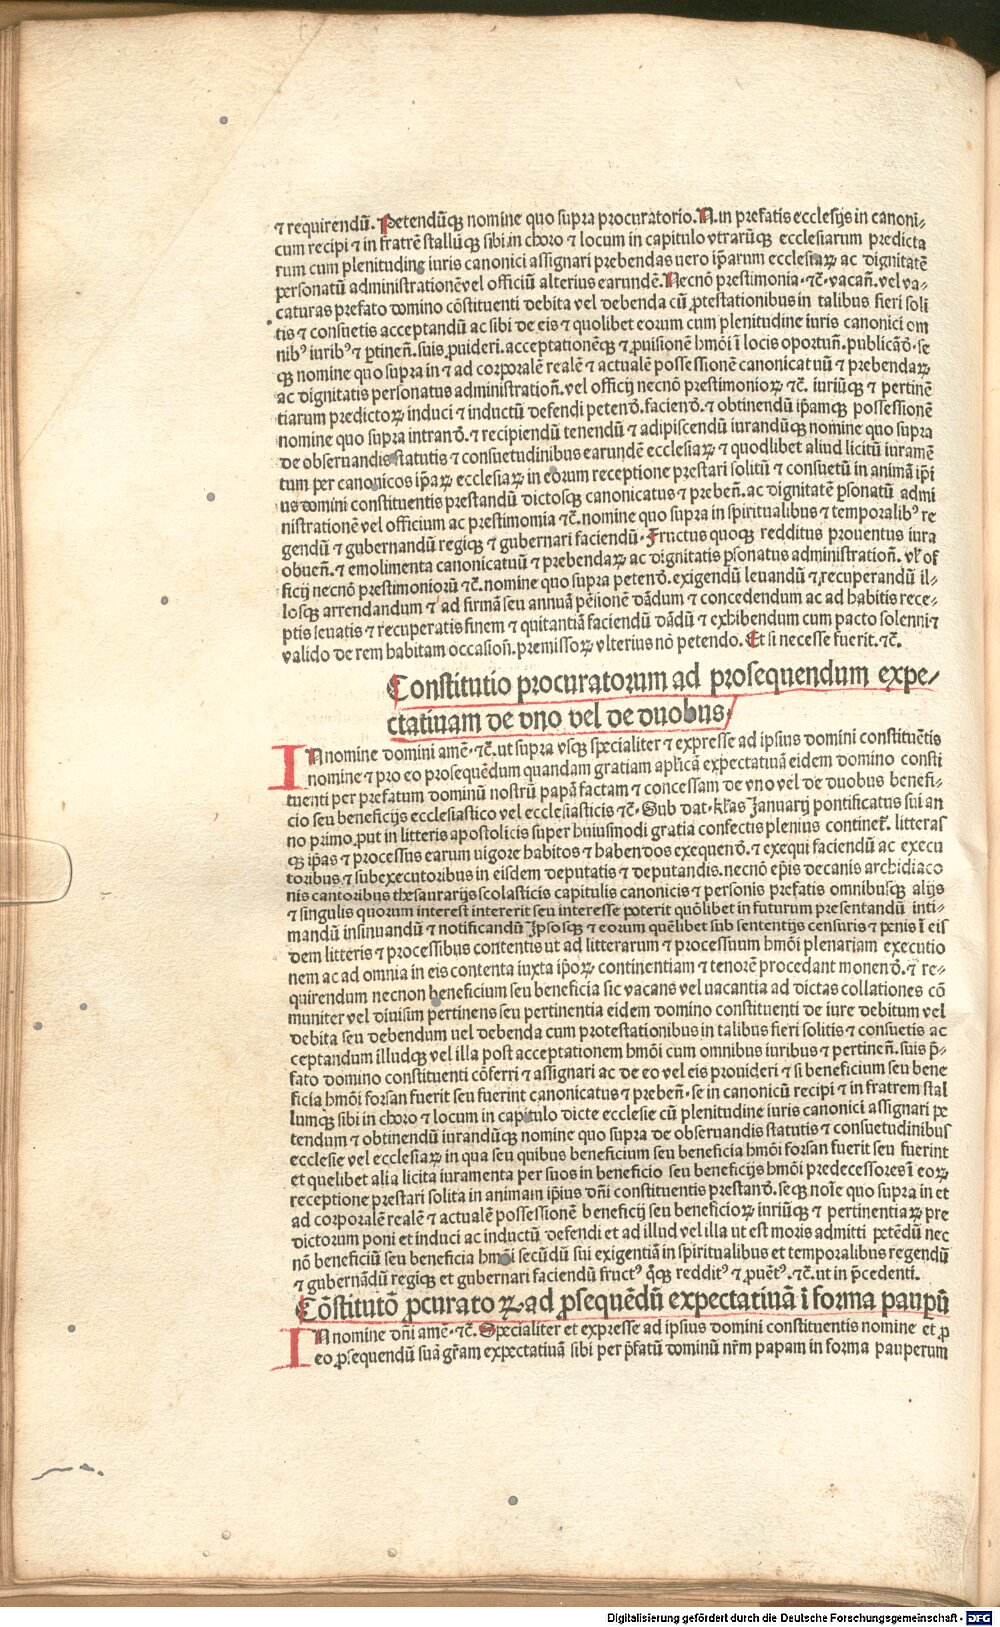 ⁊ requirendū. Petendūq; nomine quo supra procuratorio. N. in prefatis ecclesijs in canoni-
cum recipi ⁊ in fratrē stallūq; sibi in choro ⁊ locum in capitulo vtrarūq; ecclesiarum predicta
rum cum plenitudine iuris canonici assignari prebendas uero ip̄arum ecclesiaꝝ ac dignitatē
personatū administrationē vel officiū alterius earundē. Necnō prestimonia ⁊c̄. vacan̄. vel va-
caturas prefato domino cōstituenti debita vel debenda cū ꝓtestationibus in talibus fieri soli
tis ⁊ consuetis acceptandū ac sibi de eis ⁊ quolibet eorum cum plenitudine iuris canonici om
nibꝰ iuribꝰ ⁊ ꝑtinen̄. suis ꝓuideri. acceptationēq; ⁊ ꝓuisionē hmōi ī locis oportun̄. publicādō. se
q; nomine quo supra in ⁊ ad corporalē realē ⁊ actualē possessionē canonicatuū ⁊ prebendaꝝ
ac dignitatis personatus administration̄. vel officij necnō prestimonioꝝ ⁊c̄. iuriūq; ⁊ pertinē
tiarum predictoꝝ induci ⁊ inductū defendi petendō. faciendō. ⁊ obtinendū ip̄amq; possessionē
nomine quo supra intrandō. ⁊ recipiendū tenendū ⁊ adipiscendū iurandūq; nomine quo supra
de obseruandis statutis ⁊ consuetudinibus earundē ecclesiaꝝ ⁊ quodlibet aliud licitū iuramē
tum per canonicos ip̄aꝝ ecclesiaꝝ in eorum receptione prestari solitū ⁊ consuetū in animā ip̄i
us domini constituentis prestandū dictosq; canonicatus ⁊ preben̄. ac dignitatē ꝑsonatū admi
nistrationē vel officium ac prestimonia ⁊c̄. nomine quo supra in spiritualibus ⁊ temporalibꝰ re
gendū ⁊ gubernandū regiq; ⁊ gubernari faciendū. Fructus quoq; redditus prouentus iura
obuen̄. ⁊ emolimenta canonicatuū ⁊ prebendaꝝ ac dignitatis ꝑsonatus administration̄. vl̄ of
ficij necnō prestimoniorū ⁊c̄. nomine quo supra petendō. exigendū leuandū ⁊ recuperandū il-
losq; arrendandum ⁊ ad firmā seu annuā pēsionē dādum ⁊ concedendum ac ad habitis rece-
ptis leuatis ⁊ recuperatis finem ⁊ quitantiā faciendū dādū ⁊ exhibendum cum pacto solenni ⁊
valido de rem habitam occasion̄. premissoꝝ vlterius nō petendo. Et si necesse fuerit. ⁊c̄.
Constitutio procuratorum ad prosequendum expe-
ctatiuam de vno vel de duobus.
IN nomine domini amē. ⁊c̄. ut supra vsq; specialiter ⁊ expresse ad ipsius domini constituētis
nomine ⁊ pro eo prosequēdum quandam gratiam aplicā expectatiuā eidem domino consti
tuenti per prefatum dominū nostrū papā factam ⁊ concessam de vno vel de duobus benefi-
cio seu beneficijs ecclesiastico vel ecclesiasticis ⁊c̄. Sub dat. kl̄as Januarij pontificatus sui an
no primo ꝓut in litteris apostolicis super huiusmodi gratia confectis plenius continet᷑. litteras
q; ip̄as ⁊ processus earum uigore habitos ⁊ habendos exequendō. ⁊ exequi faciendū ac execu
toribus ⁊ subexecutoribus in eisdem deputatis ⁊ deputandis. necnō ep̄is decanis archidiaco
nis cantoribus thesaurarijs scolasticis capitulis canonicis ⁊ personis prefatis omnibusq; alijs
⁊ singulis quorum interest intererit seu interesse poterit quōlibet in futurum presentandū inti-
mandū insinuandū ⁊ notificandū Ipsosq; ⁊ eorum quēlibet sub sententijs censuris ⁊ penis ī eis
dem litteris ⁊ processibus contentis ut ad litterarum ⁊ processuum hmōi plenariam executio
nem ac ad omnia in eis contenta iuxta ip̄oꝝ continentiam ⁊ tenorē procedant monendō. ⁊ re-
quirendum necnon beneficium seu beneficia sic vacans vel uacantia ad dictas collationes cō
muniter vel diuisim pertinens seu pertinentia eidem domino constituenti de iure debitum vel
debita seu debendum uel debenda cum protestationibus in talibus fieri solitis ⁊ consuetis ac
ceptandum illudq; vel illa post acceptationem hmōi cum omnibus iuribus ⁊ pertinen̄. suis p̄-
fato domino constituenti cōferri ⁊ assignari ac de eo vel eis prouideri ⁊ si beneficium seu bene
ficia hmōi forsan fuerit seu fuerint canonicatus ⁊ preben̄. se in canonicū recipi ⁊ in fratrem stal
lumq; sibi in choro ⁊ locum in capitulo dicte ecclesie cū plenitudine iuris canonici assignari pe
tendum ⁊ obtinendū iurandūq; nomine quo supra de obseruandis statutis ⁊ consuetudinibus
ecclesie vel ecclesiaꝝ in qua seu quibus beneficium seu beneficia hmōi forsan fuerit seu fuerint
et quelibet alia licita iuramenta per suos in beneficio seu beneficijs hmōi predecessores ī eoꝝ
receptione prestari solita in animam ip̄ius dn̄i constituentis prestandō. seq; noīe quo supra in et
ad corporalē realē ⁊ actualē possessionē beneficij seu beneficioꝝ iuriūq; ⁊ pertinentiaꝝ pre
dictorum poni et induci ac inductū defendi et ad illud vel illa ut est moris admitti petēdū nec
nō beneficiū seu beneficia hmōi secūdū sui exigentiā in spiritualibus et temporalibus regendū
⁊ gubernādū regiq; et gubernari faciendū fructꝰ q̄q; redditꝰ ⁊ ꝓuētꝰ. ⁊c̄. ut in p̄cedenti.
Cōstitutō ꝓcuratoꝝ ad ꝓsequēdū expectatiuā ī forma paupū
IN nomine dn̄i amē. ⁊c̄. Specialiter et expresse ad ipsius domini constituentis nomine et ꝓ
eo ꝓsequendū suā gr̄am expectatiuā sibi per p̄fatū dominū nr̄m papam in forma pauperum
Digitalisierung gefördert durch die Deutsche Forschungsgemeinschaft - DFG